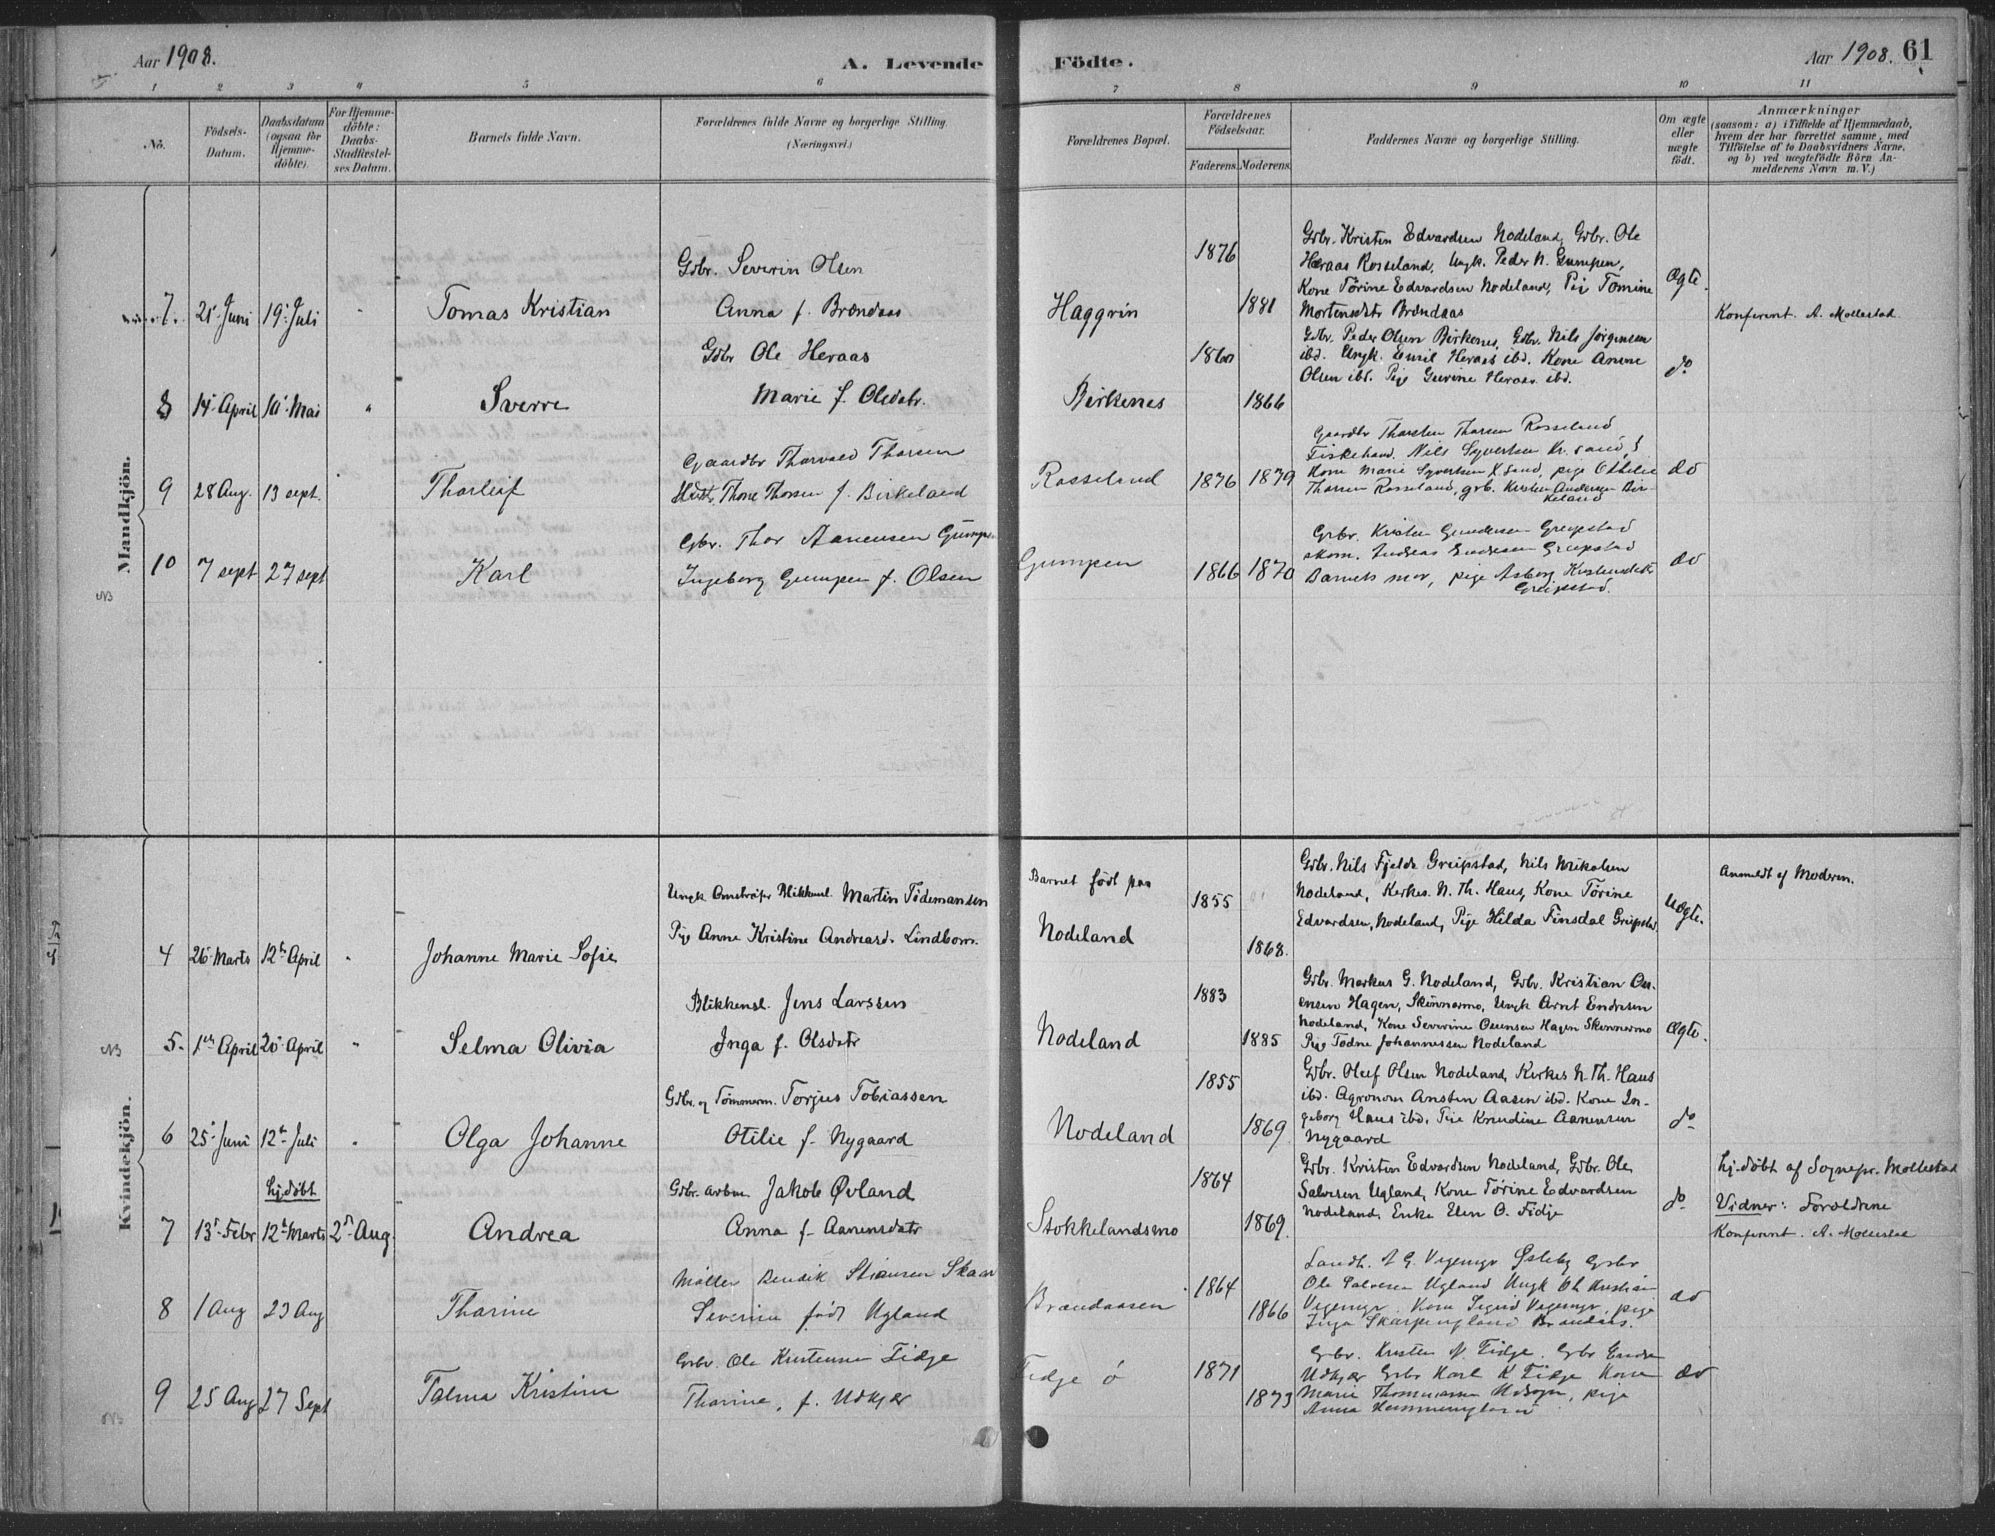 Aar 1908.
A. Levende Födte.
Aar 1908. 61
1 2 3 4 5 6 7 8 9 10 11
No.
Födsels-Datum.
Daabsdatum (ogsaa for Hjemme-döbte).
For Hjemme-döbte: Daabs-Stadfæstel-ses Datum.
Barnets fulde Navn.
Forældrenes fulde Navne og borgerlige Stilling.
(Næringsvei.)
Forældrenes Bopæl.
Forældrenes Födselsaar.
Faderens. Moderens.
Faddernes Navne og borgerlige Stilling.
Om ægte eller uægte födt.
Anmærkninger
(saasom: a) i Tilfælde af Hjemmedaab,
hvem der har forrettet samme, med
Tilföielse af to Daabsvidners Navne,
og b) ved uægtefödte Börn An-
melderens Navn m. V.)
Mandkjön.
7. 21 Juni 19 Juli " Tomas Kristian
Gdbr. Severin Olsen
Anna f. Brændaas
Haggrin
1876 1881
Gdbr. Kristen Edvardsen Nodeland, Gdbr. Ole
Heraas Rosseland, Ungk. Peder N. Gumpen,
Kone Tørine Edvardsen Nodeland, Pige Tomine
Mortensdtr Brændaas
Ægte.
Konferent. A. Mollestad
8 14 April 10 Mai " Sverre
Gdbr Ole Heraas
Marie f. Olsdatr.
Birkenes
1860 1866
Gdbr. Peder Olsen Birkenes, Gdbr. Nils Jørgensen
ibd. Ungk. Emil Heraas ibd. Kone Anne
Olsen ibd. Pige Gurine Heraas ibd.
do
9 28 Aug. 13 sept. Thorleif
Gaardbr Thorvald Thorsen
Hustr. Thone Thorsen f. Birkeland
Rosseland
1876 1879
Gaardbr Thorsten Thorsen Rosseland
Fiskehand. Nils Syvertsen Kr. sand,
Kone Marie Syvertsen K sand, pige Otelie
Thorsen Rosseland, grb. Kristen Andersen Bir-
keland
do
10 7 sept 27 sept Karl
Gbr. Thor Aanensen Gumpen
Ingeborg Gumpen f. Olsen
Gumpen
1866 1870
Grbr. Kristen Gundersen Greipstad
skom. Andreas Endresen Greipstad
Barnets mor, pige Asborg Kristensdatter
Greipstad.
do
NB
Kvindekjön.
4 26 Marts 12te April " Johanne Marie Sofie
Ungk Omstreifer Blikkensl. Martin Tidemansen
Pige Anne Kristine Andreasd. Lindbom.
Barnet født paa
Nodeland
1855 1868.
Gdbr. Nils Fjelde Greipstad, Nils Mikalsen
Nodeland, Kerkes. N. Th. Haus, Kone Tørine
Edvardsen, Nodeland, Pige Hilda Finsdal Greipstad
Uægte.
Anmeldt af Moderen.
NB
5. 1ste April 20 April " Selma Olivia
Blikkensl. Jens Larssen
Inga f. Olsdatr
Nodeland
1883 1885
Gdbr. Markus G. Nodeland, Gdbr. Kristian Ou-
ensen Hagen, Skinnarmo, Ungk Arnt Endresen
Nodeland, Kone Severine Ouensen Hagen Skinnarmo
Pige Todne Johannessen Nodeland
Ægte.
6 25 Juni 12te Juli " Olga Johanne
Gdbr. og Tømmerm. Torjus Tobiassen
Otilie f. Nygaard
Nodeland
1855 1869
Gdbr. Oluf Olsen Nodeland, Kerkes N. Th. Haus
ibd. Agronom Ansten Aasen ibd. Kone In-
geborg Haus ibd. Pige Knudine Aanensen
Nygaard
do
7 13 Febr hj.døbt 12te Marts 2den Aug. Andrea
Gdbr. Jakob Øvland
Anna f. Aanensdatr
Stokkelandsmo
1864 1869.
Gdbr. Kristen Edvardsen Nodeland, Gdbr. Ole
Salvesen Ugland, Kone Tørine Edvardsen
Nodeland, Enke Elen O. Fidje
do
hj.døbt af Sognepr. Mollestad
Vidner: Forældrene
Konferent. A. Mollestad
8 1 Aug 23 Aug Tharine
Møller Bendik Skaar
Severine født Ugland
Brændaasen
1864 1866
Landh. G. Vegemyr Østeby Grbr
Ole Salvesen Ugland Ungk Kristian
Vegemyr. Kone Sigrid Vegemyr, pige
Inga Skarpengland Brændaas.
do
NB
9 25 Aug 27 Sept Talma Kristine
Grbr. Ole Kristensen Fidge
Tharine, f. Udkjær
Fidge ø
1871 1873
Grbr. Kristen N. Fidge. Grbr Endre
Udkjær Grbr Karl K Fidge Kone
Marie Thommasen, pige
Anna
do